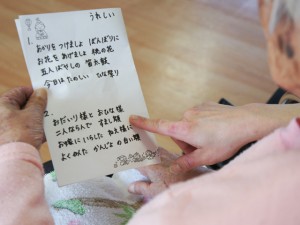 うれしい
1.
あかりを つけましょ ぼんぼりに
お花を あげましょ 桃の花
五人ばやしの 笛太鼓
今日は たのしい ひな祭り
2.
おだいり様と おひな様
二人ならんで すまし顔
お嫁に いらした ねえ様に
よくにた かんじょの 白い顔